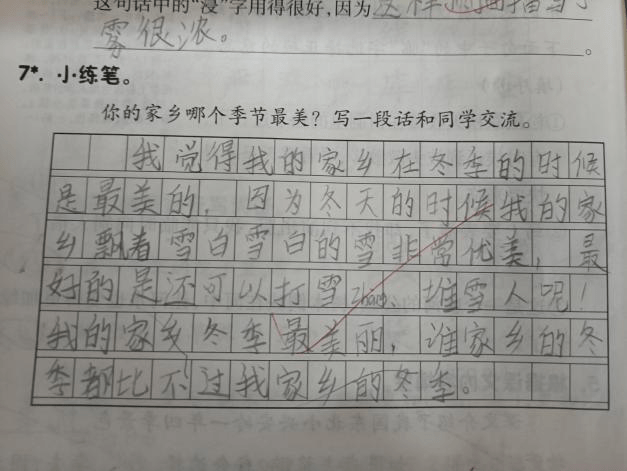 这句话中的“浸”字用得很好,因为这样
雾很浓。
7*. 小练笔。
你的家乡哪个季节最美?写一段话和同学交流。
我觉得我的家乡在冬季的时候
是最美的,因为冬天的时候我的家
乡飘着雪白雪白的雪非常优美,最
好的是还可以打雪zhang堆雪人呢!
我的家乡冬季最美丽,谁家乡的冬
季都比不过我家乡的冬季。